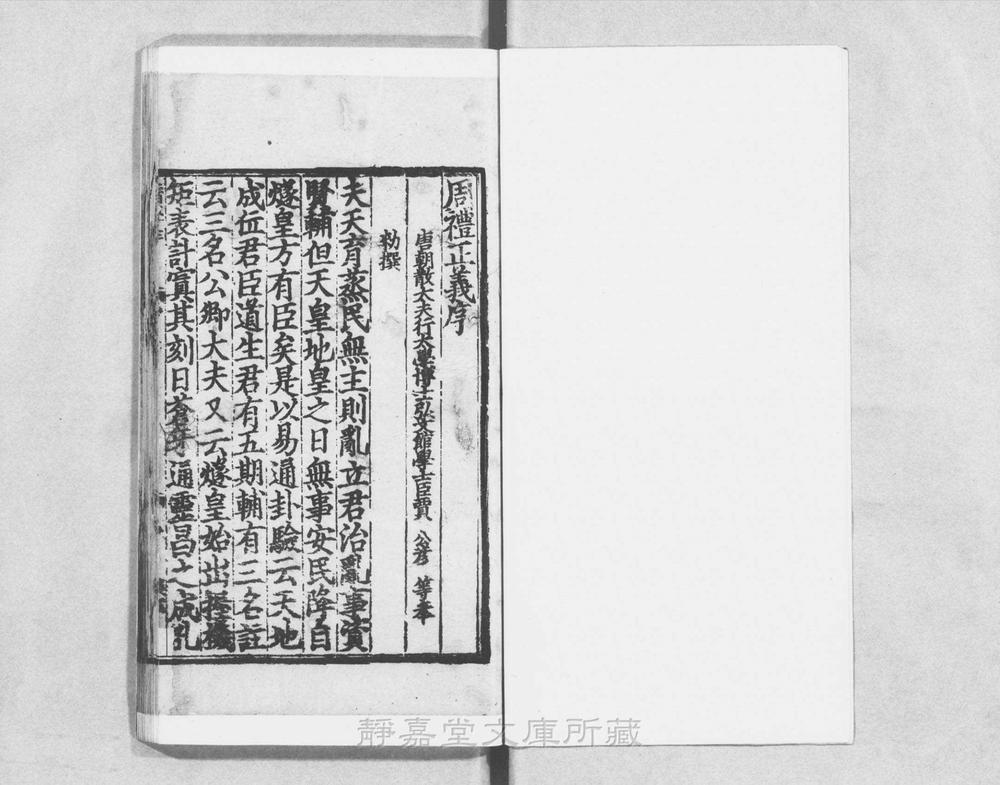 周禮正義序
唐朝散大夫行太學博士弘文館學士臣賈 公彦 等奉
勑撰
夫天育蒸民無主則亂立君治亂事資
賢輔但天皇地皇之日無事安民降自
燧皇方有臣矣是以易通卦驗云天地
成位君臣道生君有五期輔有三名註
云三名公卿大夫又云燧皇始出握機
矩表計寘其刻曰蒼牙通靈昌之成孔
靜嘉堂文庫所藏